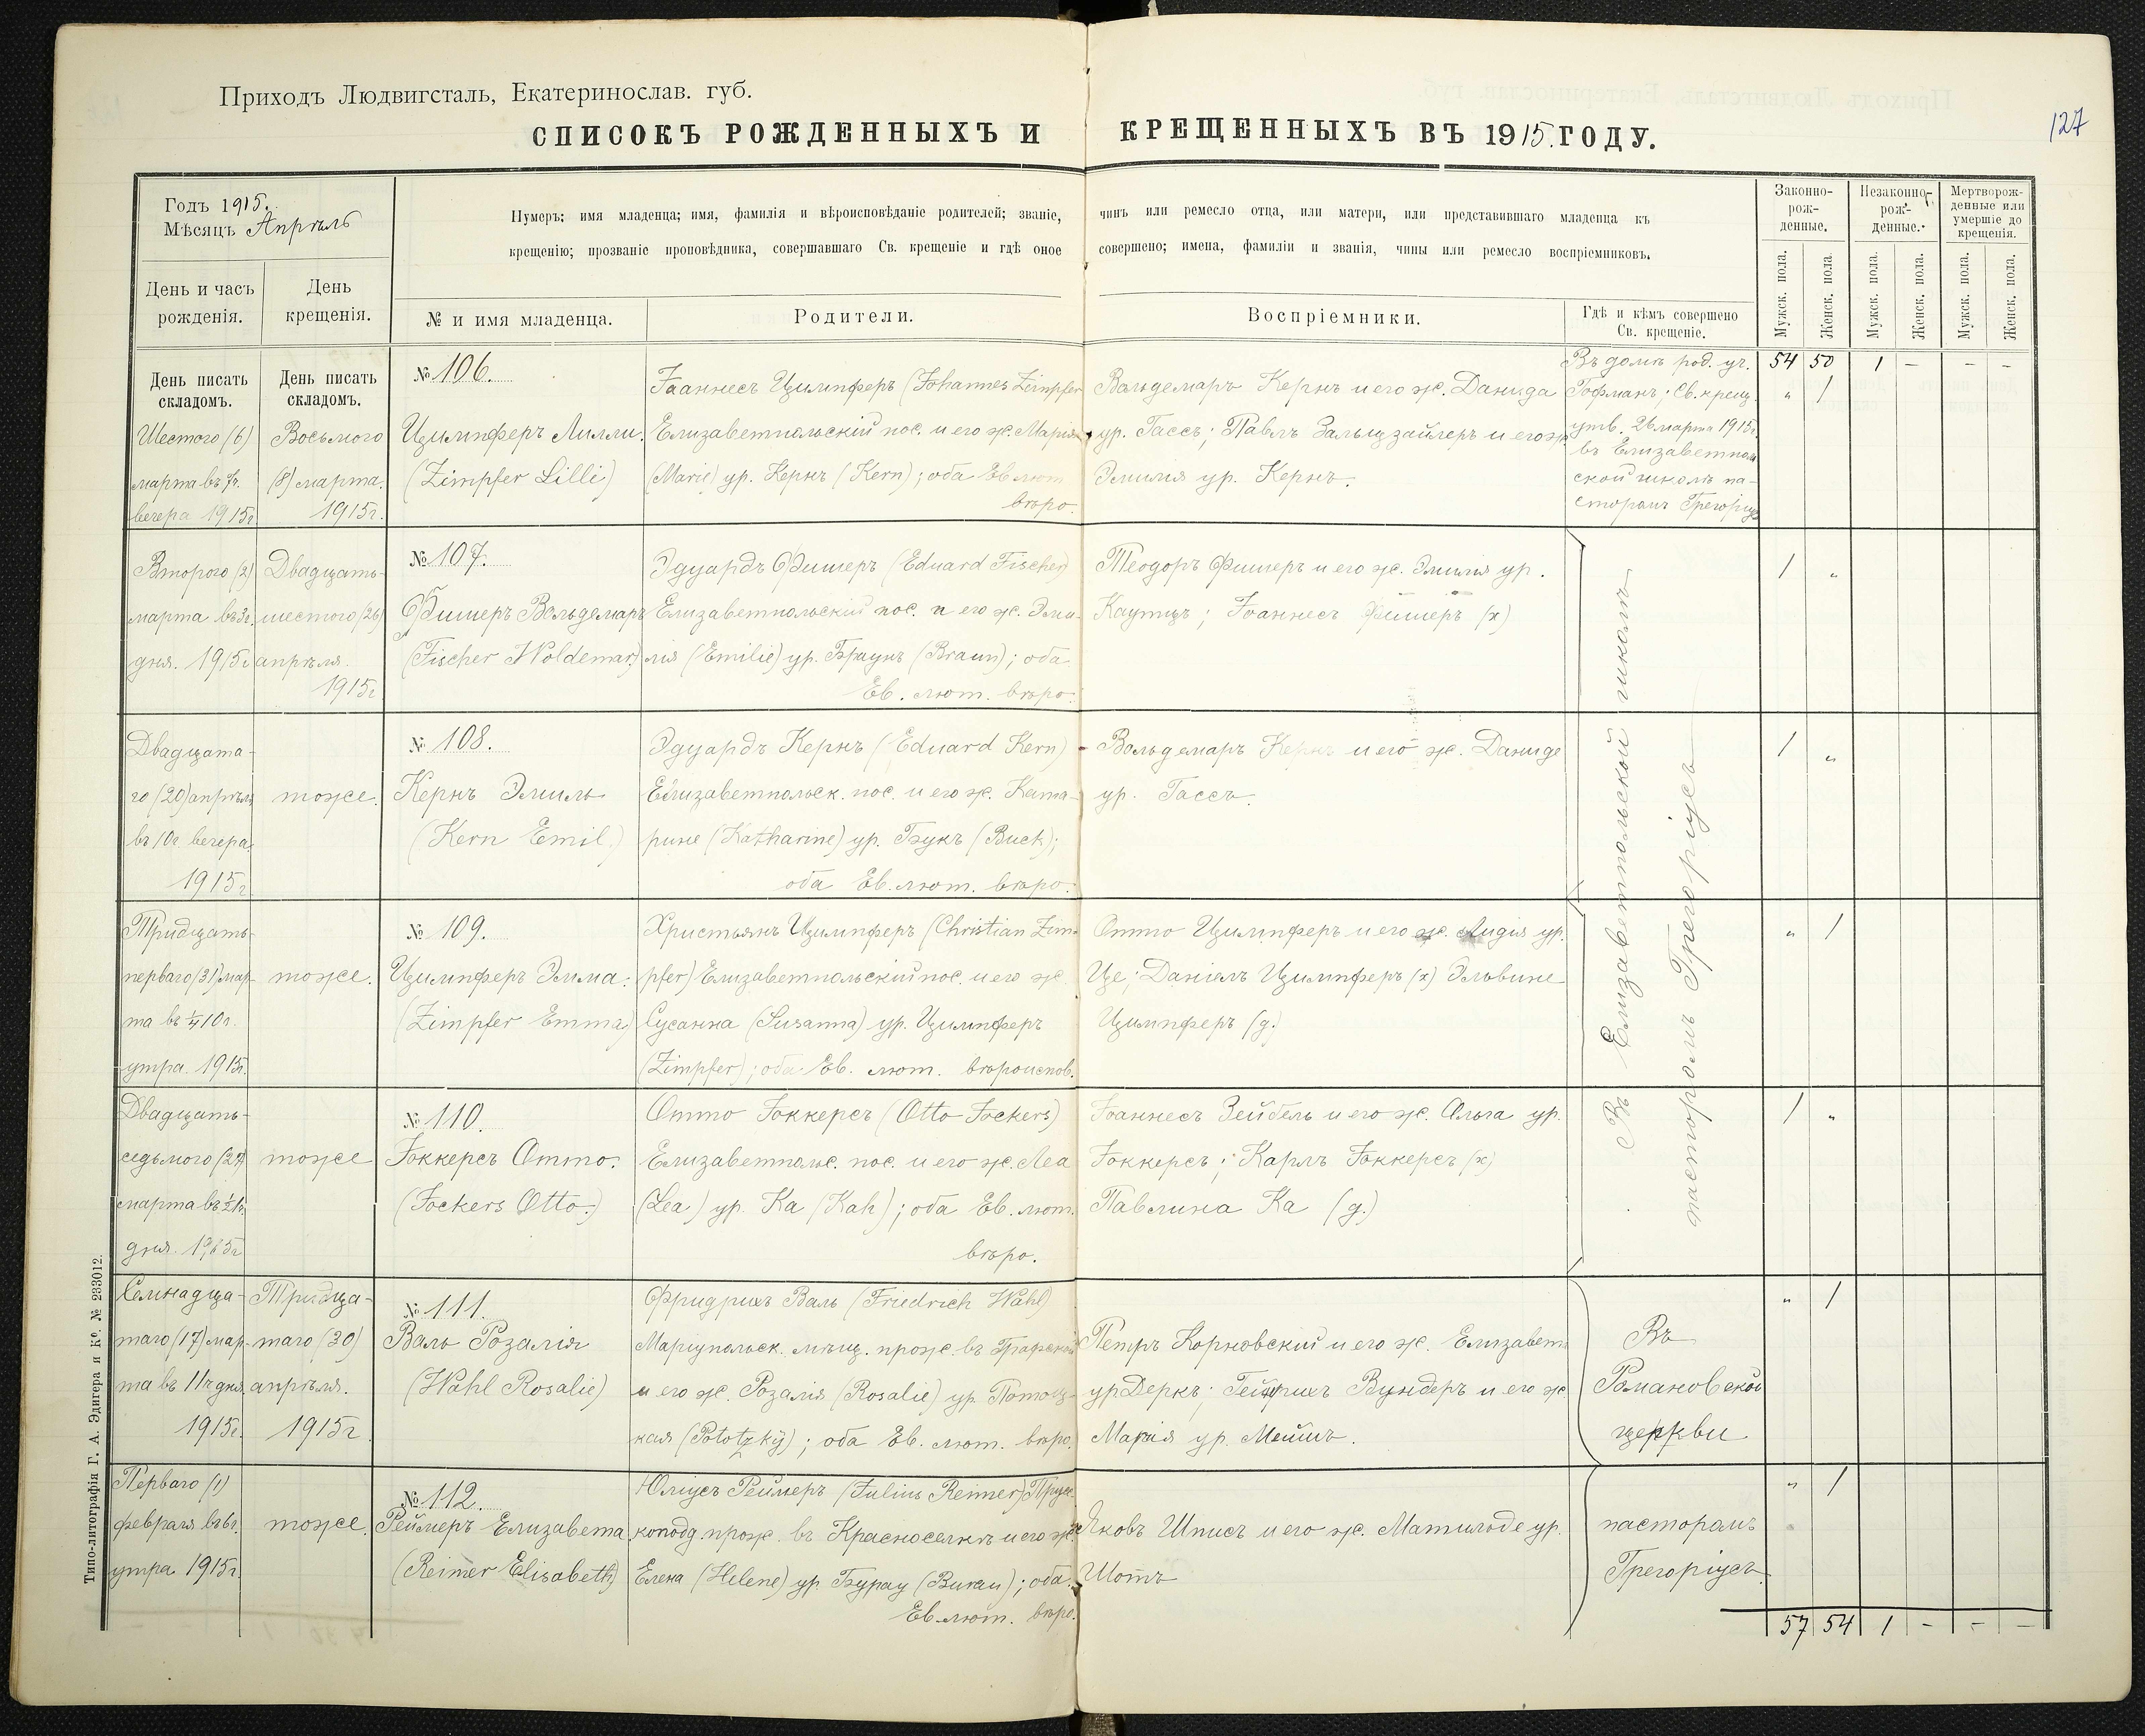 Приходъ Людвигсталь, Екатеринослав. губ.
127
СПИСОКЪ РОЖДЕННЫХЪ И КРЕЩЕННЫХЪ ВЪ 1915 ГОДУ.
Годъ 1915.
Мѣсяцъ Апрѣль
День и часъ рожденія.
День крещенія.
Нумеръ; имя младенца; имя, фамилія и вѣроисповѣданіе родителей; званіе, чинъ или ремесло отца, или матери, или представившаго младенца къ
крещенію; прозваніе проповѣдника, совершавшаго Св. крещеніе и гдѣ оное совершено; имена, фамиліи и званія, чины или ремесло воспріемниковъ.
№ и имя младенца.
Родители.
Воспріемники.
Гдѣ и кѣмъ совершено
Св. крещеніе.
Законно-
рож-
денные.
Незаконно-
рож-
денные.
Мертворож-
денные или
умершіе до
крещенія.
Мужск. пола.
Женск. пола.
Мужск. пола.
Женск. пола.
Мужск. пола.
Женск. пола.
День писать
складомъ.
Шестого (6)
марта въ 7ч.
вечера 1915г.
День писать
складомъ.
Восьмого
(8) марта.
1915г.
№ 106.
Цимпферъ Лилли.
(Zimpfer Lilli)
Іоаннесъ Цимпферъ (Johannes Zimpfer
Елизаветпольскій пос. и его ж. Марія
(Marie) ур. Кернъ (Kern); оба Ев. лют.
вѣро.
Вальдемаръ Кернъ и его ж. Данида
ур. Гассъ; Павлъ Зальцзайлеръ и его ж
Эмилія ур. Кернъ.
Въ домѣ род. уч.
Гофманъ; Св. крещ.
утв. 26 марта 1915г.
въ Елизаветполь
ской школѣ па-
сторомъ Грегоріусъ
54 50 1 - - -
" 1
Второго (2)
марта въ 3ч.
дня. 1915г.
Двадцать-
шестого (26)
апрѣля.
1915г.
№ 107.
Фишеръ Вольдемаръ
(Fischer Woldemar)
Эдуардъ Фишеръ (Eduard Fischer)
Елизаветпольскій пос. и его ж. Эми-
лія (Emilie) ур. Браунъ (Braun); оба
Ев. лют. вѣро.
Теодоръ Фишеръ и его ж. Эмилія ур.
Каутцъ; Іоаннесъ Фишеръ (х)
1 "
Двадцата-
го (20) апрѣля
въ 10ч. вечера.
1915г.
тоже.
№ 108.
Кернъ Эмиль
(Kern Emil.)
Эдуардъ Кернъ (Eduard Kern)
Елизаветпольск. пос. и его ж. Ката-
рине (Katharine) ур. Букъ (Buck);
оба Ев. лют. вѣро.
Вольдемаръ Кернъ и его ж. Даниде
ур. Гассъ.
1 "
Тридцать-
перваго (31) мар-
та въ ¼10ч.
утра. 1915г.
тоже.
№ 109.
Цимпферъ Эмма.
(Zimpfer Emma)
Христьянъ Цимпферъ (Christian Zim-
pfer) Елизаветпольскій пос. и его ж.
Сусанна (Susanna) ур. Цимпферъ
(Zimpfer); оба Ев. лют. вѣроиспов.
Отто Цимпферъ и его ж. Лидія ур.
Це; Даніелъ Цимпферъ (х) Эльвине
Цимпферъ (д.)
" 1
Двадцать-
седьмого (27)
марта въ ½1ч.
дня. 1915г.
тоже
№ 110.
Іоккерсъ Отто.
(Jockers Otto.)
Отто Іоккерсъ (Otto Jockers)
Елизаветпольс. пос. и его ж. Леа
(Lea) ур. Ка (Kah); оба Ев. лют.
вѣро.
Іоаннесъ Зейбель и его ж. Ольга ур.
Іоккерсъ; Карлъ Іоккерсъ (х)
Павлина Ка (д.)
Въ Елизаветпольской школѣ
пасторомъ Грегоріусъ
1 "
Семнадца-
таго (17) мар-
та въ 11ч дня.
1915г.
Тридца-
таго (30)
апрѣля.
1915г
№ 111.
Валь Розалія
(Wahl Rosalie)
Фридрихъ Валь (Friedrich Wahl)
Маріупольск. мѣщ. прож. въ Графской
и его ж. Розалія (Rosalie) ур. Потоц-
кая (Pototzky); оба Ев. лют. вѣро.
Петръ Корновскій и его ж. Елизавет.
ур. Деркъ; Гейнрихъ Вундеръ и его ж.
Марія ур. Мейшъ.
Въ
Романовской
церкви
" 1
Перваго (1)
февраля въ 6ч.
утра 1915г.
тоже.
№ 112.
Реймеръ Елизавета
(Reimer Elisabeth)
Юліусъ Реймеръ (Julius Reimer) Прусс
коподд. прож. въ Красноселкѣ и его ж.
Елена (Helene) ур. Бурау (Burau); оба
Ев. лют. вѣро.
Яковъ Шписъ и его ж. Матильде ур.
Шоттъ
пасторомъ
Грегоріусъ
" 1
57 54 1 - - -
Типо-литографія Г. А. Эдигера и К°. № 233012.